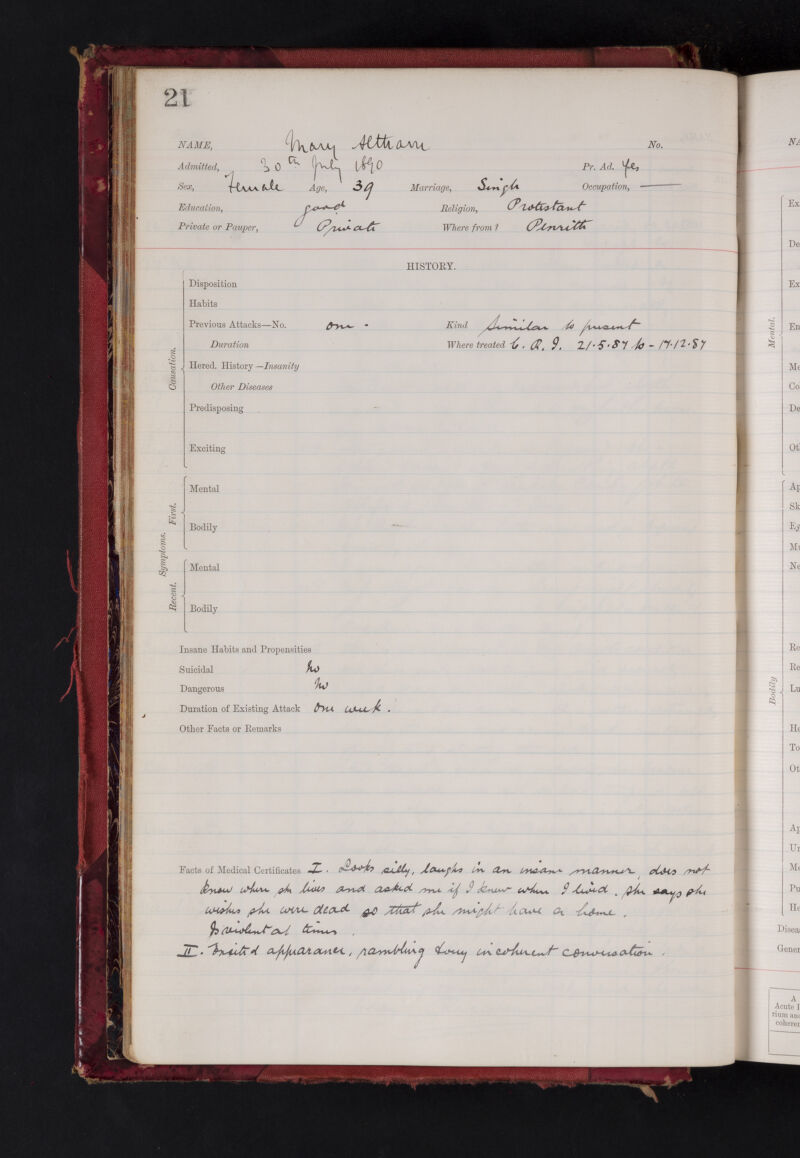 21
NAME, Mary Altham No.
Admitted, 30th July 1890 Pr. Ad. Yes
Sex, Female Age, 39 Marriage, Single Occupation, —
Education, good Religion, Protestant
Private or Pauper, Private Where from? Penrith
HISTORY.
Causation.
Disposition
Habits
Previous Attacks—No. one. Kind Similar to present
Duration Where treated C. A. I. 21.5.87 to - 17.12.87
Hered. History—Insanity
Other Diseases
Predisposing
Exciting
Symptoms.
First.
Mental
Bodily
Recent.
Mental
Bodily
Insane Habits and Propensities
Suicidal No
Dangerous No
Duration of Existing Attack One week.
Other Facts or Remarks
Facts of Medical Certificates I. Looks silly, laughs in an insane manner, does not
know where she lives and asked me if I knew where I lived. She says she
wishes she were dead so that she might have a home.
Is violent at times.
II. Excited appearance, rambling incoherent conversation.
NA
Mental.
Ex
De
Ex
En
Me
Co
De
Ot
Bodily
Ap
Sk
Ey
Mu
Ne
Re
Re
Lu
He
To
Ot
Ap
Ur
Me
Pu
He
Disea
Gener
A
Acute I
rium and
coheren